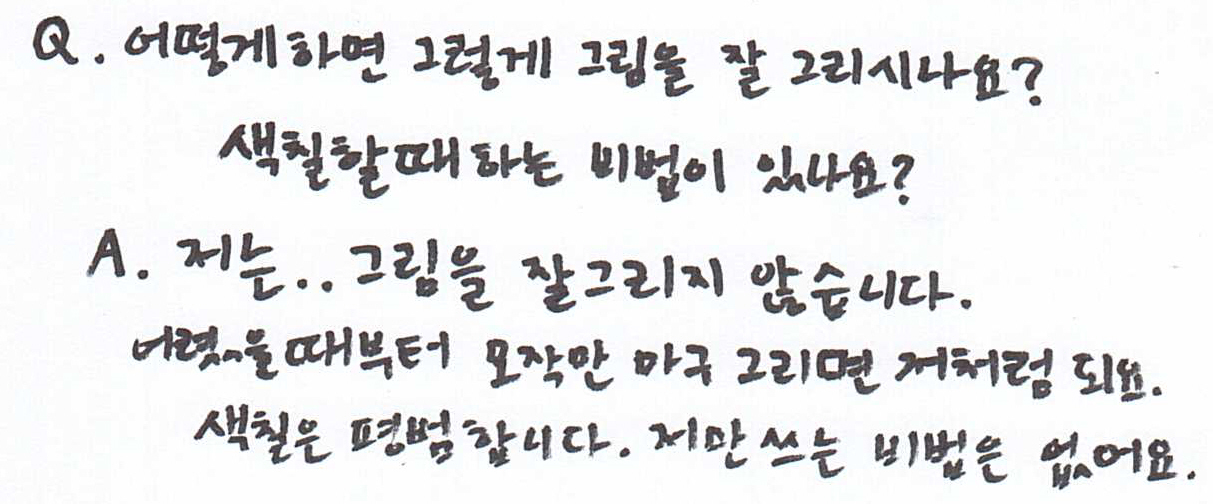 Q. 어떻게하면 그렇게 그림을 잘 그리시나요?
색칠할때 하는 비법이 있나요?
A. 저는.. 그림을 잘그리지 않습니다.
어렸을때부터 모작만 마구 그리면 저처럼 되요.
색칠은 평범합니다. 저만 쓰는 비법은 없어요.